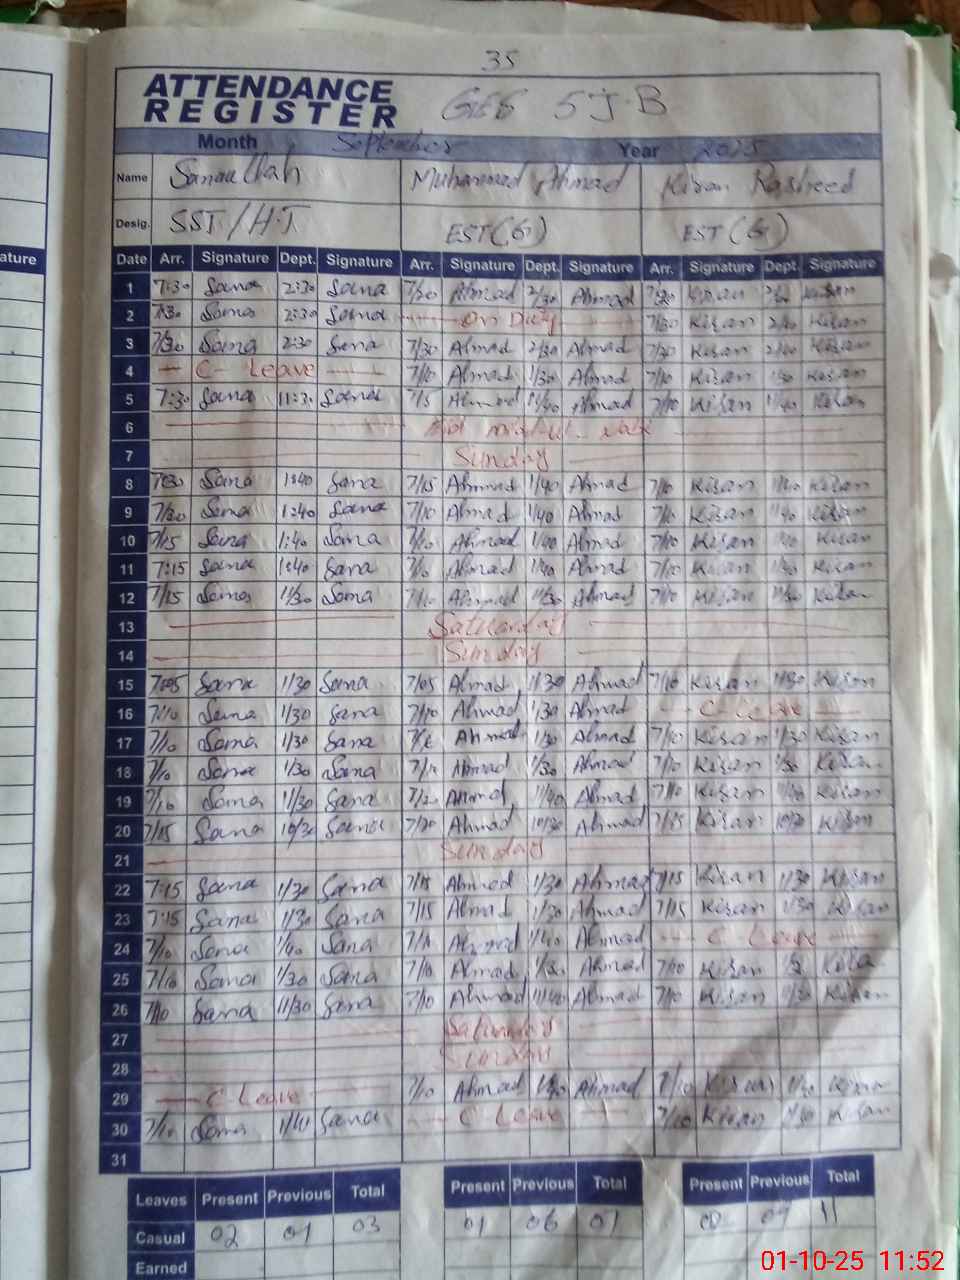 35
ATTENDANCE
REGISTER
5 J.B
Month September Year 2025
Name Sanaullah Muhammad Ahmad Kiran Rasheed
Desig. SST/H.T EST(G) EST(G)
ature
Date Arr. Signature Dept. Signature Arr. Signature Dept. Signature Arr. Signature Dept. Signature
1 7:30 Sana 2:30 Sana 7/30 Ahmad 2/30 Ahmad 7/30 Kiran Kiran
2 7:30 Sana 2:30 Sana On Duty 7/30 Kiran Kiran
3 7/30 Sana 2:30 Sana 7/30 Ahmad 2/30 Ahmad 7/30 Kiran Kiran
4 C- Leave 7/10 Ahmad 1/30 Ahmad 7/10 Kiran 1/30 Kiran
5 7:30 Sana 11:30 Sana 7/15 Ahmad 11/40 Ahmad 7/10 Kiran 11/40 Kiran
6
7 Sunday
8 7:30 Sana 1:40 Sana 7/15 Ahmad 1/40 Ahmad 7/10 Kiran 1/40 Kiran
9 7/20 Sana 1:40 Sana 7/10 Ahmad 1/40 Ahmad 7/10 Kiran 1/40 Kiran
10 7/15 Sana 1:40 Sana 7/10 Ahmad 1/40 Ahmad 7/10 Kiran 1/40 Kiran
11 7:15 Sana 1:40 Sana 7/10 Ahmad 1/40 Ahmad 7/10 Kiran Kiran
12 7/15 Sana 11/30 Sana 7/10 Ahmad 11/30 Ahmad 7/10 Kiran 11/30 Kiran
13 Saturday
14 Sunday
15 7:05 Sana 1/30 Sana 7/05 Ahmad 1/30 Ahmad 7/10 Kiran 1/30 Kiran
16 7:10 Sana 1/30 Sana 7/10 Ahmad 1/30 Ahmad C-Leave
17 7/10 Sana 1/30 Sana Ahmad 1/30 Ahmad 7/10 Kiran 1/30 Kiran
18 7/10 Sana 1/30 Sana 7/10 Ahmad 1/30 Ahmad 7/10 Kiran 1/30 Kiran
19 7/10 Sana 11/30 Sana 7/20 Ahmad 11/40 Ahmad 7/10 Kiran 11/40 Kiran
20 7/15 Sana 10/30 Sana 7/20 Ahmad 10/30 Ahmad 7/15 Kiran 10/30 Kiran
21 Sunday
22 7:15 Sana 1/30 Sana 7/15 Ahmad 1/30 Ahmad 7/15 Kiran 1/30 Kiran
23 7:15 Sana 1/30 Sana 7/15 Ahmad 1/30 Ahmad 7/15 Kiran 1/30 Kiran
24 7/10 Sana 1/40 Sana 7/10 Ahmad 1/40 Ahmad C Leave
25 7/10 Sana 1/30 Sana 7/10 Ahmad 1/30 Ahmad 7/10 Kiran Kiran
26 7/10 Sana 11/30 Sana 7/10 Ahmad 11/40 Ahmad 7/10 Kiran 11/30 Kiran
27 Saturday
28 Sunday
29 C Leave 7/10 Ahmad 1/40 Ahmad 7/10 Kiran 1/40 Kiran
30 7/10 Sana 1/40 Sana C Leave 7/10 Kiran 1/40 Kiran
31
Leaves Present Previous Total Present Previous Total Present Previous Total
Casual 02 01 03 01 06 07 11
Earned
01-10-25 11:52